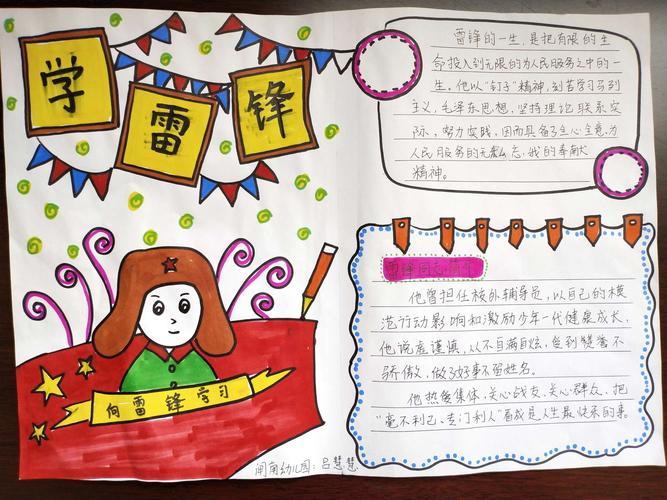 学
雷
锋
雷锋的一生，是把有限的生
命投入到无限的为人民服务之中的一
生，他以“钉子”精神，刻苦学习马列
主义，毛泽东思想，坚持理论联系实
际，努力实践，因而具备了全心全意为
人民服务的无私忘我的奉献
精神。
他曾担任校外辅导员，以自己的模
范行动影响和激励少年一代健康成长，
他谦虚谨慎，从不自满自炫，受到赞誉不
骄傲，做了好事不留姓名。
他热爱集体，关心战友、关心群众，把
“毫不利己、专门利人”看成是人生最快乐的事。
向雷锋学习
幼儿园：吕慧慧